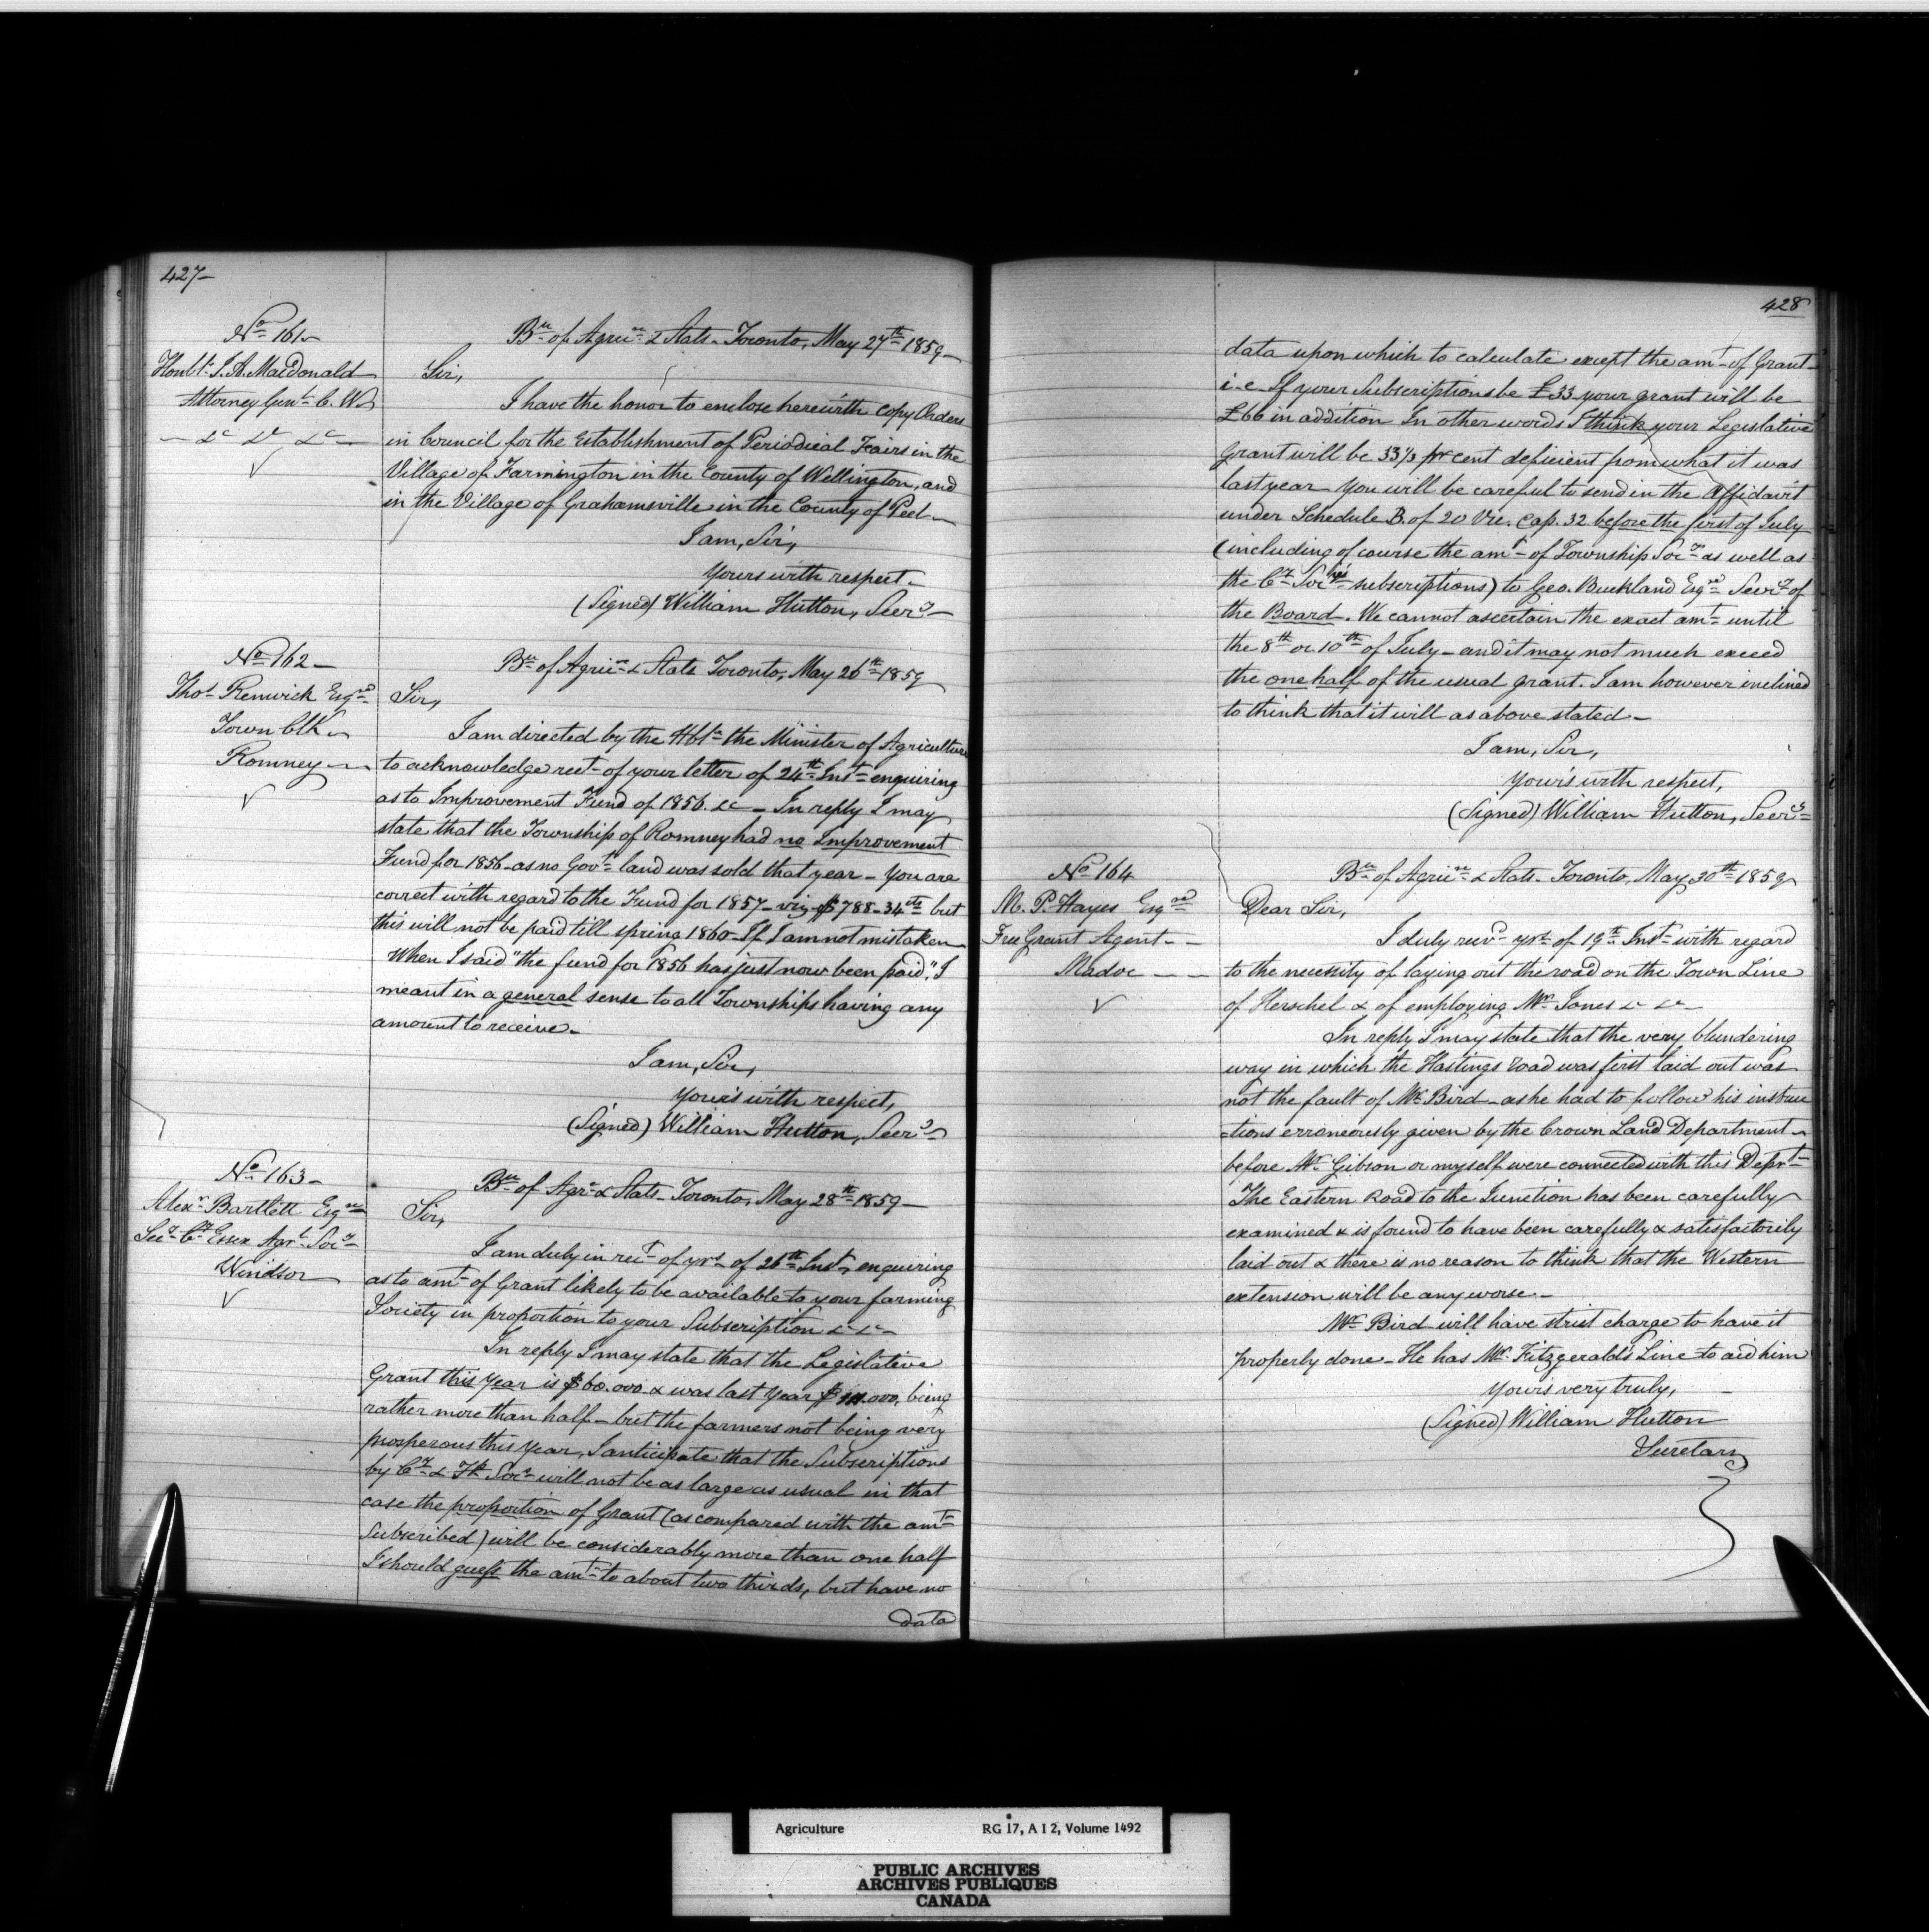 427
No 161
Honble J. A. MacDonald
Attorney Genl C. W.
&c &c &c
Bu of Agrire & Stats. Toronto, May 27th 1859
Sir,
I have the honor to enclose herewith copy Orders
in Council for the Establishment of Periodical Fairs in the
Village of Farmington in the County of Wellington, and
in the Village of Grahamsville in the County of Peel
I am, Sir,
Yours with respect
(Signed) William Hutton, Secry
No 162
Thos Renwick Esqre
Town Clk
Romney
Bu of Agrire & Stats Toronto, May 26th 1859
Sir,
I am directed by the Hble the Minister of Agriculture
to acknowledge rect of your letter of 24th Inst enquiring
as to Improvement Fund of 1856. &c _ In reply I may
state that the Township of Romney had no Improvement
Fund for 1856 _ as no Govt land was sold that year _ You are
correct with regard to the Fund for 1857 _ viz $788_34cts but
this will not be paid till spring 1860 _ If I am not mistaken
When I said "the fund for 1856 has just now been paid", I
meant in a general sense to all Townships having any
amount to receive _
I am, Sir,
Your's with respect,
(Signed) William Hutton, Secry
No 163
Alexr Bartlett Esqre
Secy Cy Essex Agrl Socy
Windsor
Bu of Agre & Stats _ Toronto, May 28th 1859
Sir,
I am duly in rect of yrs of 26th Inst, enquiring
as to amt of Grant likely to be available to your farming
Society in proportion to your Subscription &c &c
In reply I may state that the Legislative
Grant this year is $60.000 & was last year being
rather more than half _ but the farmers not being very
prosperous this year, I anticipate that the Subscriptions
by Cy & Tp Socs will not be as large as usual in that
case the proportion of Grant (as compared with the amt
Subscribed) will be considerably more than one half
I should guess the amt to about two thirds, but have no
data
428
data upon which to calculate except the amt of Grant
i.e. If your Subscriptions be £33 your grant will be
£66 in addition In other words I think your Legislative
Grant will be 33⅓ pr cent deficient from what it was
last year You will be careful to send in the Affidavit
under Schedule B. of 20 Vic. Cap. 32 before the first of July
(including of course the amt of Township Socys as well as
the Cy Socy's subscriptions) to Geo. Buckland Esqre Secry of
the Board. We cannot ascertain the exact amt until
the 8th or 10th of July _ and it may not much exceed
the one half of the usual grant. I am however inclined
to think that it will as above stated _
I am, Sir,
Your's with respect,
(Signed) William Hutton, Secry
No 164
M. P. Hayes Esqre
Free Grant Agent
Madoc
Bu of Agrire & Stats. Toronto, May 30th 1859
Dear Sir,
I duly recvd yrs of 19th Inst with regard
to the necessity of laying out the road on the Town Line
of Herschel & of employing Mr Jones &c &c
In reply I may state that the very blundering
way in which the Hastings road was first laid out was
not the fault of Mr Bird _ as he had to follow his instruc
=tions erroneously given by the Crown Land Department
before Mr Gibson or myself were connected with this Deprt
The Eastern Road to the Junction has been carefully
examined & is found to have been carefully & satisfactorily
laid out & there is no reason to think that the Western
extension will be any worse _
Mr Bird will have strict charge to have it
properly done _ He has Mr Fitzgerald's Line to aid him
Your's very truly,
(Signed) William Hutton
Secretary
Agriculture RG 17, A I 2, Volume 1492
PUBLIC ARCHIVES
ARCHIVES PUBLIQUES
CANADA